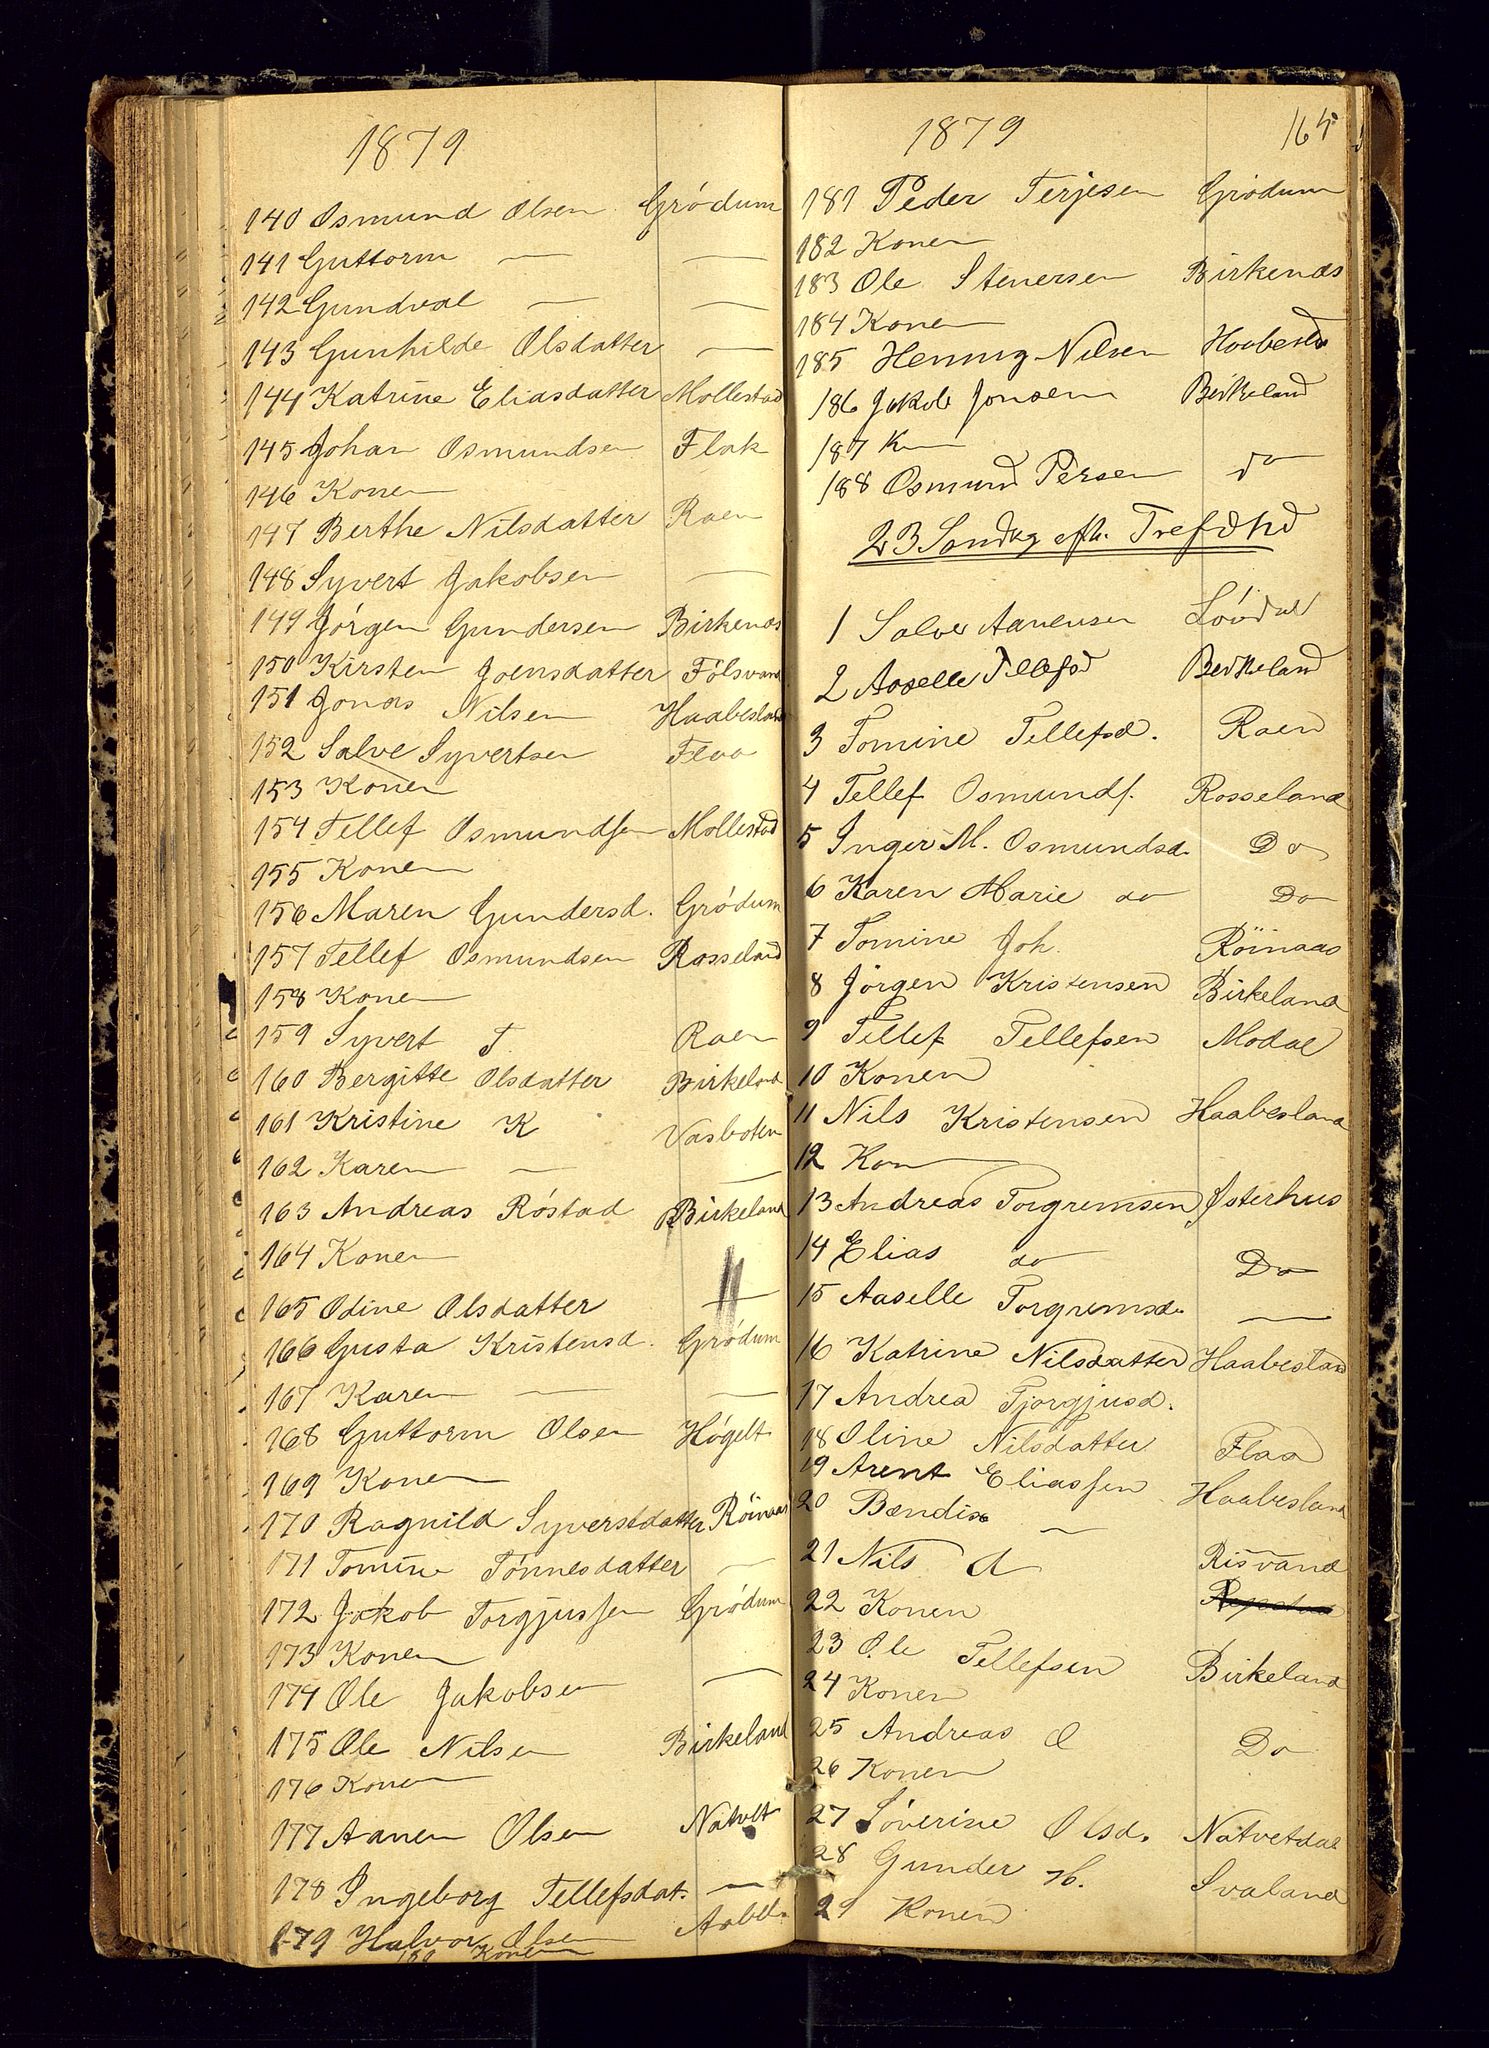 1879
140 Osmund Olsen Grödum
141 Guttorm — —
142 Gundval — —
143 Gunhilde Olsdatter —
144 Katrine Eliasdatter Mollestad
145 Johan Osmundsen Flak
146 Konen
147 Berthe Nilsdatter Raen
148 Syvert Jakobsen —
149 Jörgen Gundersen Birkenæs
150 Kirsten Joensdatter Fölsvand
151 Jonas Nilsen Haabesland
152 Salve Syvertsen Flaa
153 Konen
154 Tellef Osmundsen Mollestad
155 Konen
156 Maren Gundersd. Grödum
157 Tellef Osmundsen Rosseland
158 Konen
159 Syvert T. Raen
160 Bergitte Olsdatter Birkeland
161 Kristine K Vasboten
162 Karen — —
163 Andreas Röstad Birkeland
164 Konen
165 Odine Olsdatter —
166 Gusta Kristensd. Grödum
167 Karen — —
168 Guttorm Olsen Högelt
169 Konen
170 Ragnild Syverstdatter Röinaas
171 Tomine Tönnesdatter —
172 Jakob Torgjussen Grödum
173 Konen
174 Ole Jakobsen —
175 Ole Nilsen Birkeland
176 Konen
177 Aanen Olsen Natvet
178 Ingeborg Tellefsdat. —
179 Halvor Olsen
180 Konen
1879 165
181 Peder Terjesen Grödum
182 Konen
183 Ole Stenersen Birkenæs
184 Konen
185 Hennig Nilsen Haabesld
186 Jakob Jonsen Birkeland
187 K
188 Osmund Persen do
23 Søndg efth. Trefdhd
1 Salve Aanensen Lövdal
2 Aaselle Tellefsd Birkeland
3 Tomine Tellefsd. Raen
4 Tellef Osmunds. Rosseland
5 Inger M. Osmundsd. Do
6 Karen Marie do Do
7 Tomine Joh. Röinaas
8 Jörgen Kristensen Birkeland
9 Tellef Tellefsen Modal
10 Konen
11 Nils Kristensen Haabesland
12 Kon
13 Andreas Torgremsen Østerhus
14 Elias do Do
15 Aaselle Torgremsd. —
16 Katrine Nilsdatter Haabesland
17 Andrea Tjorgjusd.
18 Oline Nilsdatter Flaa
19 Arent Eliassen Haabesland
20 Bendix —
21 Nils A Risvand
22 Konen
23 Ole Tellefsen Birkeland
24 Konen
25 Andreas O Do
26 Konen
27 Söverine Olsd. Natvetdal
28 Gunder H. Svaland
29 Konen